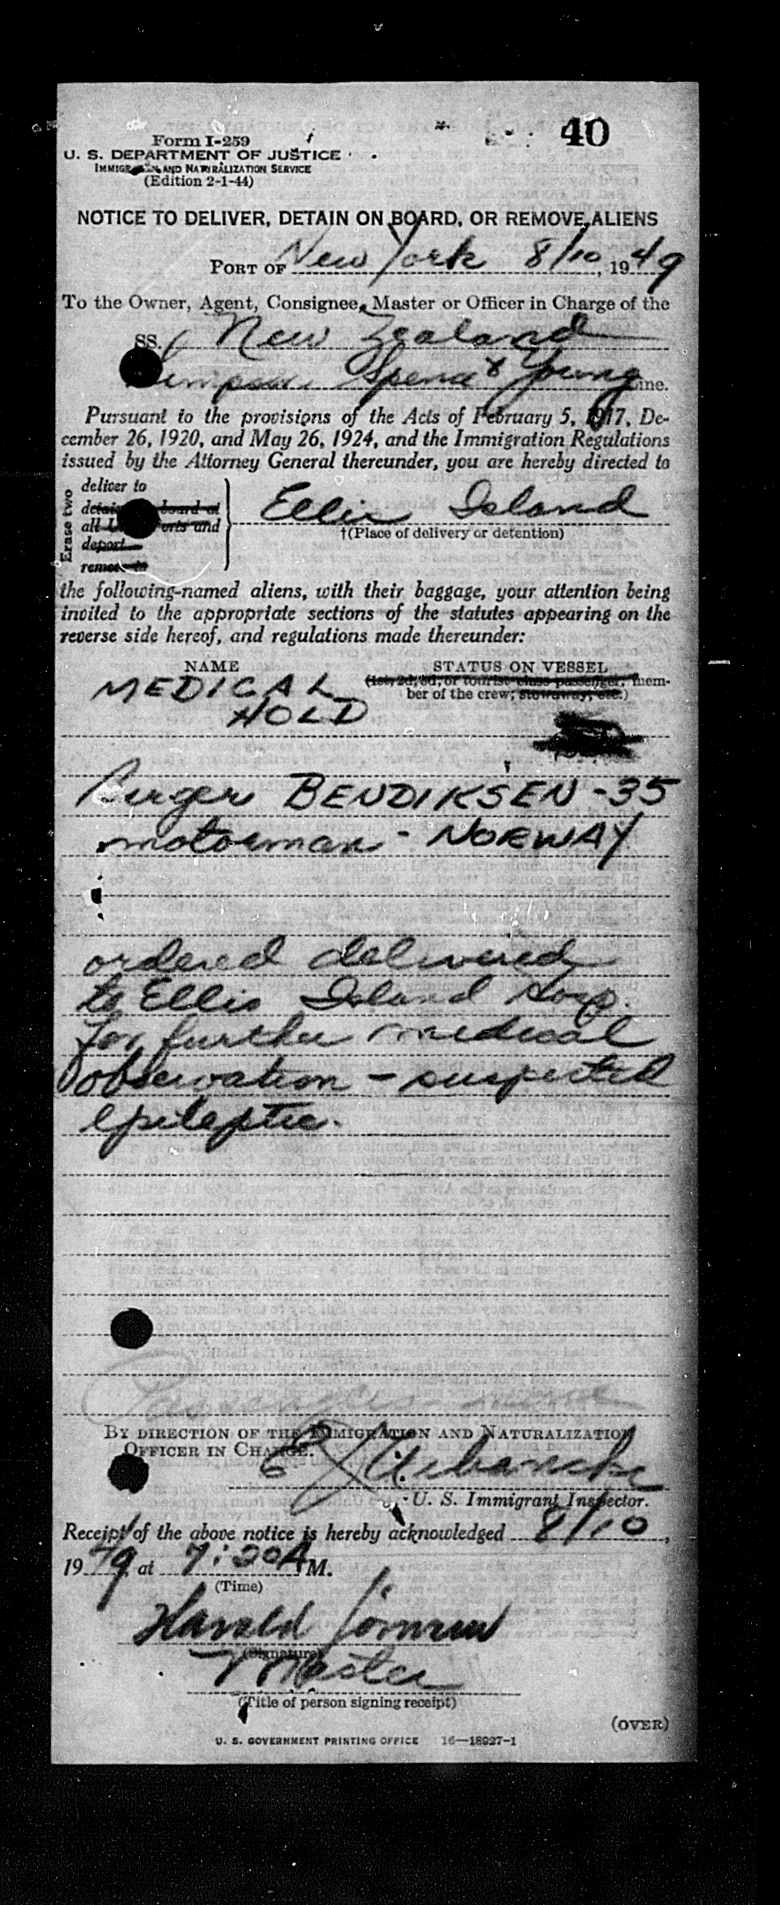 40
Form I-259
U. S. DEPARTMENT OF JUSTICE
IMMIGRATION AND NATURALIZATION SERVICE
(Edition 2-1-44)
NOTICE TO DELIVER, DETAIN ON BOARD, OR REMOVE ALIENS
PORT OF New York 8/10, 1949
To the Owner, Agent, Consignee, Master or Officer in Charge of the
SS. New Zealand
Simpson Spence & Young Line.
Pursuant to the provisions of the Acts of February 5, 1917, De-
cember 26, 1920, and May 26, 1924, and the Immigration Regulations
issued by the Attorney General thereunder, you are hereby directed to
Erase two
deliver to
detain on board at
all U. S. ports and
deport
remove to
Ellis Island
†(Place of delivery or detention)
the following-named aliens, with their baggage, your attention being
invited to the appropriate sections of the statutes appearing on the
reverse side hereof, and regulations made thereunder:
NAME STATUS ON VESSEL
(1st, 2d, 3d, or tourist class passenger, mem-
ber of the crew, stowaway, etc.)
MEDICAL
HOLD
Birger BENDIKSEN - 35
motorman - NORWAY
ordered delivered
to Ellis Island Hosp.
for further medical
observation - suspected
epileptic.
BY DIRECTION OF THE IMMIGRATION AND NATURALIZATION
OFFICER IN CHARGE.
U. S. Immigrant Inspector.
Receipt of the above notice is hereby acknowledged 8/10,
1949 at 7:20 A M.
(Time)
Harald
(Signature)
Master
(Title of person signing receipt)
(OVER)
U. S. GOVERNMENT PRINTING OFFICE 16—18927-1